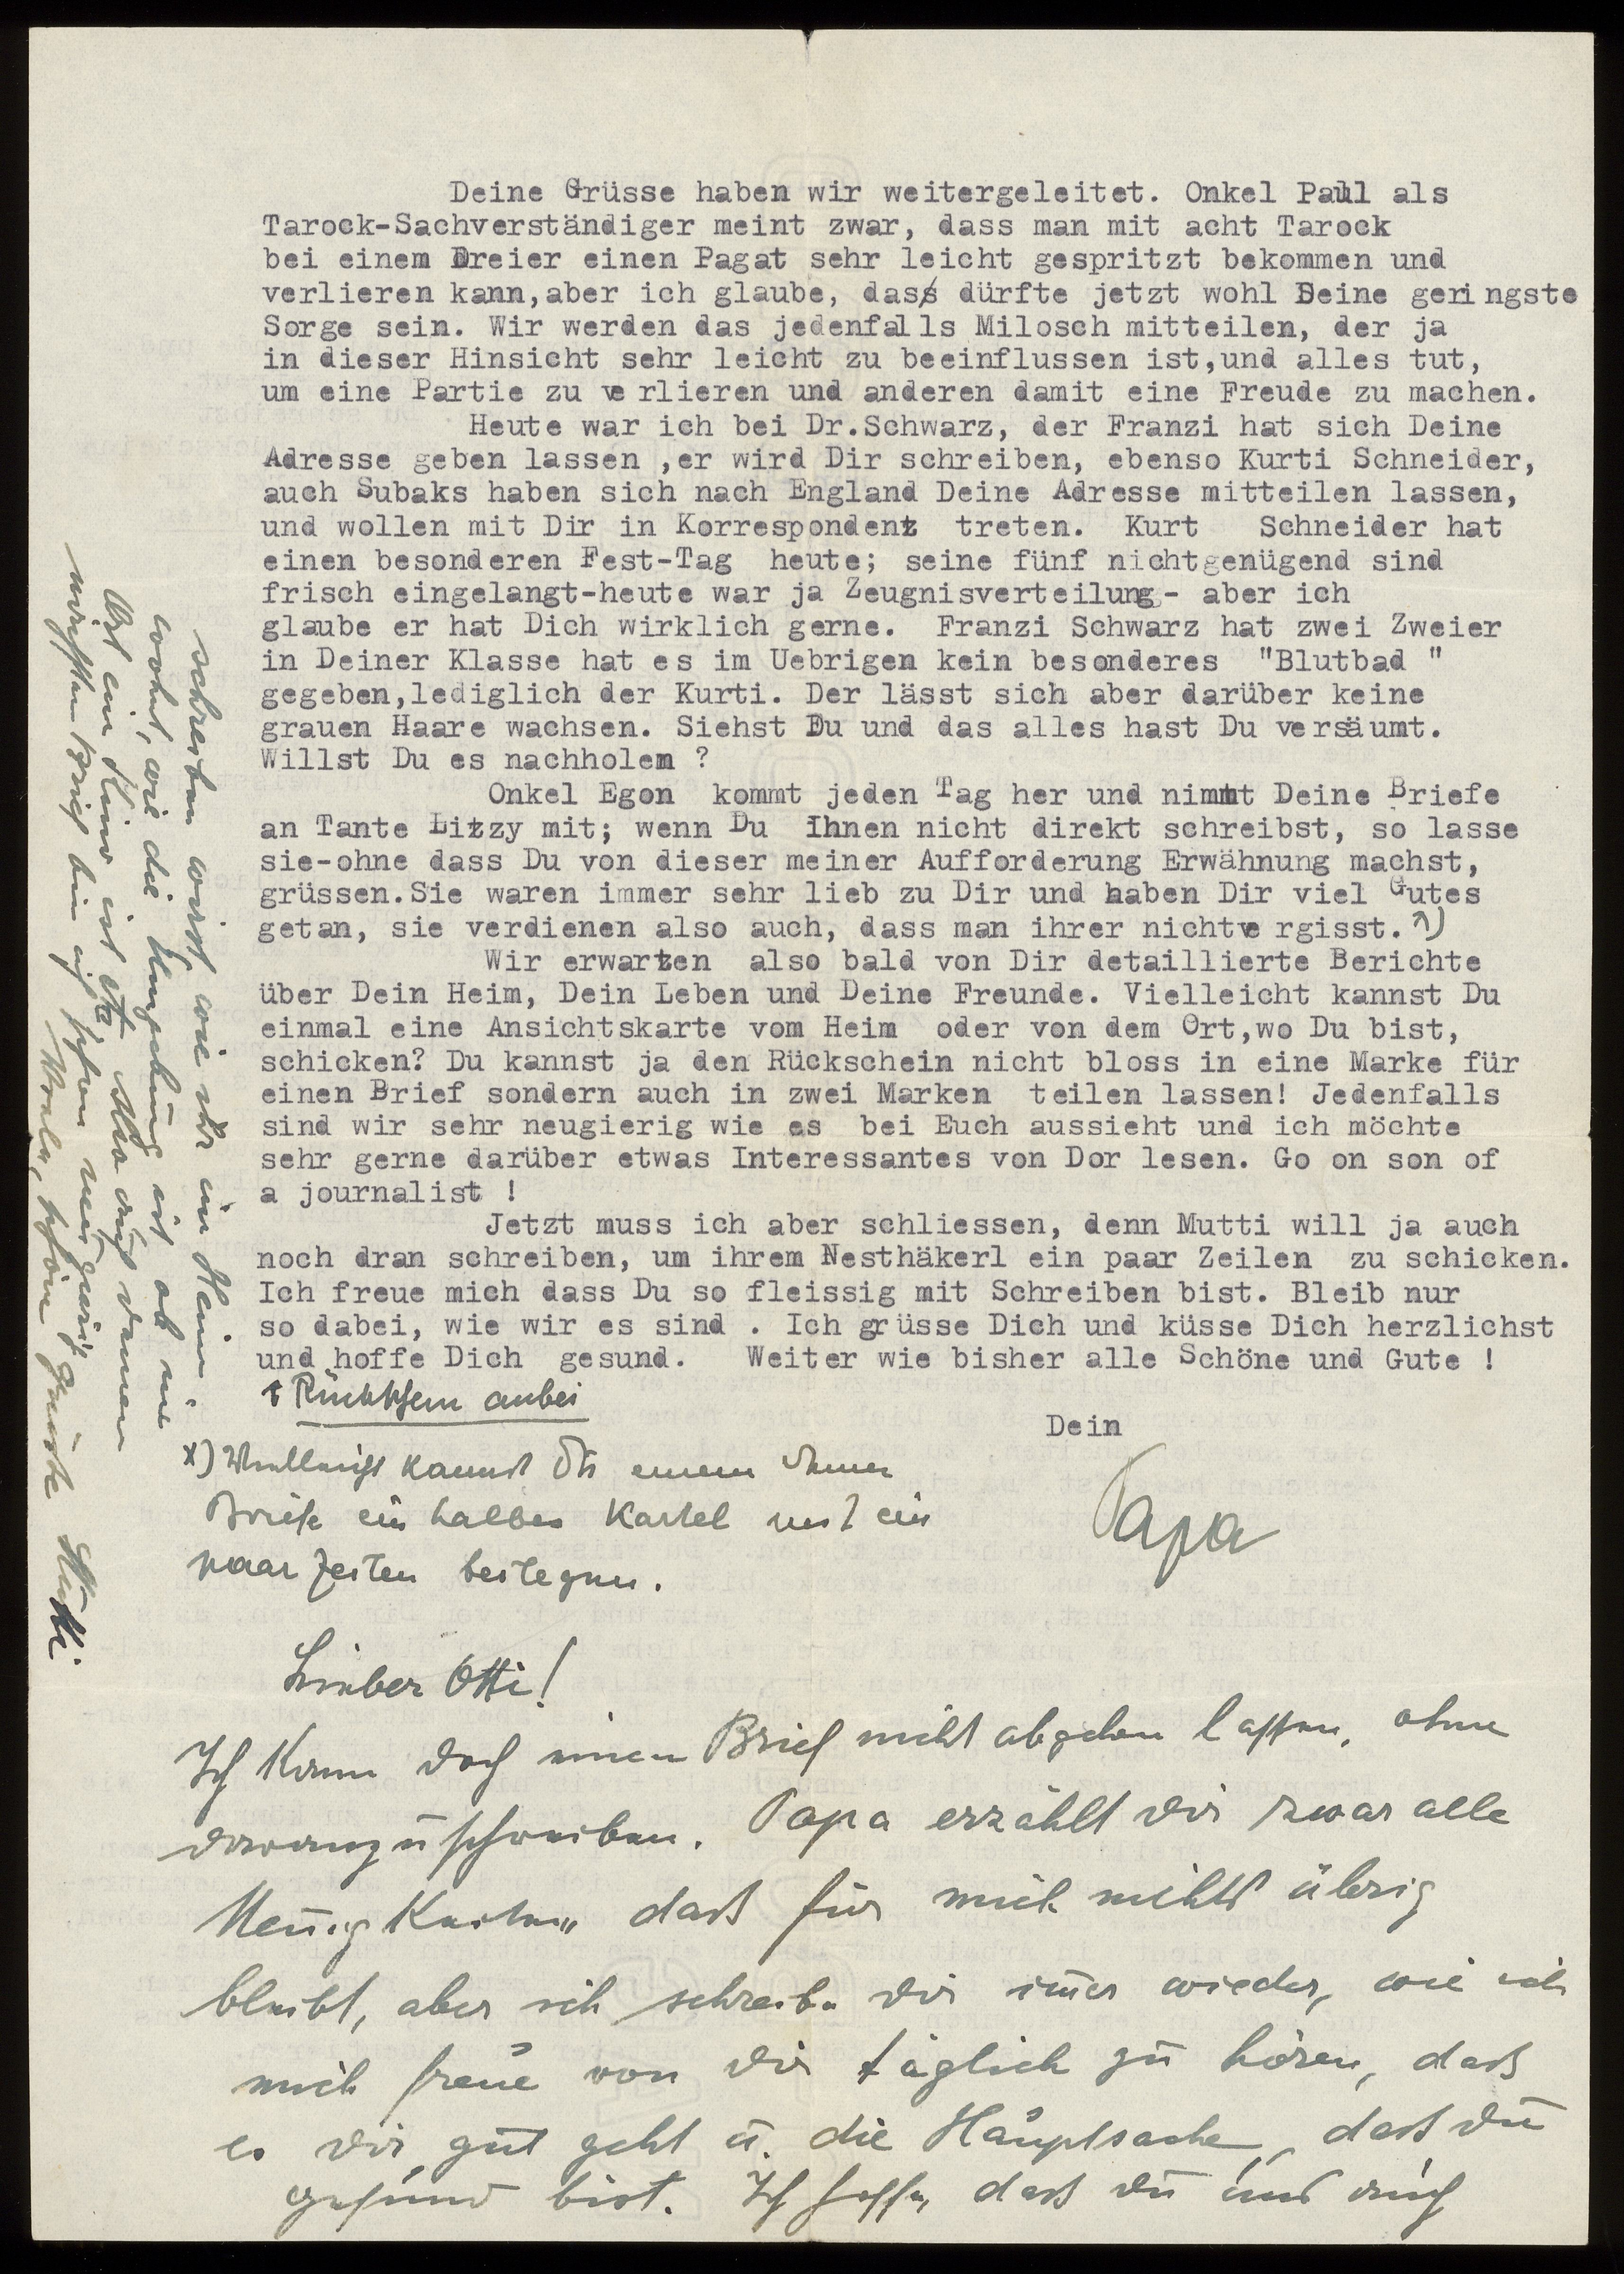 Deine Grüsse haben wir weitergeleitet. Onkel Paul als
Tarock-Sachverständiger meint zwar, dass man mit acht Tarock
bei einem Dreier einen Pagat sehr leicht gespritzt bekommen und
verlieren kann,aber ich glaube, das dürfte jetzt wohl Deine geringste
Sorge sein. Wir werden das jedenfalls Milosch mitteilen, der ja
in dieser Hinsicht sehr leicht zu beeinflussen ist,und alles tut,
um eine Partie zu ve rlieren und anderen damit eine Freude zu machen.
Heute war ich bei Dr.Schwarz, der Franzi hat sich Deine
Adresse geben lassen ,er wird Dir schreiben, ebenso Kurti Schneider,
auch Subaks haben sich nach England Deine Adresse mitteilen lassen,
und wollen mit Dir in Korrespondenz treten. Kurt Schneider hat
einen besonderen Fest-Tag heute; seine fünf nichtgenügend sind
frisch eingelangt-heute war ja Zeugnisverteilung- aber ich
glaube er hat Dich wirklich gerne. Franzi Schwarz hat zwei Zweier
in Deiner Klasse hat es im Uebrigen kein besonderes "Blutbad "
gegeben,lediglich der Kurti. Der lässt sich aber darüber keine
grauen Haare wachsen. Siehst Du und das alles hast Du versäumt.
Willst Du es nachholen ?
Onkel Egon kommt jeden Tag her und nimmt Deine Briefe
an Tante Litzy mit; wenn Du Ihnen nicht direkt schreibst, so lasse
sie-ohne dass Du von dieser meiner Aufforderung Erwähnung machst,
grüssen.Sie waren immer sehr lieb zu Dir und haben Dir viel Gutes
getan, sie verdienen also auch, dass man ihrer nichtve rgisst. x)
Wir erwarten also bald von Dir detaillierte Berichte
über Dein Heim, Dein Leben und Deine Freunde. Vielleicht kannst Du
einmal eine Ansichtskarte vom Heim oder von dem Ort,wo Du bist,
schicken? Du kannst ja den Rückschein nicht bloss in eine Marke für
einen Brief sondern auch in zwei Marken teilen lassen! Jedenfalls
sind wir sehr neugierig wie es bei Euch aussieht und ich möchte
sehr gerne darüber etwas Interessantes von Dor lesen. Go on son of
a journalist !
Jetzt muss ich aber schliessen, denn Mutti will ja auch
noch dran schreiben, um ihrem Nesthäkerl ein paar Zeilen zu schicken.
Ich freue mich dass Du so fleissig mit Schreiben bist. Bleib nur
so dabei, wie wir es sind . Ich grüsse Dich und küsse Dich herzlichst
und hoffe Dich gesund. Weiter wie bisher alle Schöne und Gute !
Rückschein anbei
Dein
Papa
x) Vielleicht kannst Du einem Deiner
Briefe ein halbes Kartel mit ein
paar Zeilen beilegen.
Lieber Otti!
Ich kann doch einen Brief nicht abgehen lassen, ohne
daranzuschreiben. Papa erzählt Dir zwar alle
Neuigkeiten, daß für mich nichts übrig
bleibt, aber ich schreibe Dir imer wieder, wie ich
mich freue von Dir täglich zu hören, daß
es Dir gut geht u. die Hauptsache, daß Du
gesund bist. Ich hoffe, daß Du uns auch
schreiben wirst, wie ihr im Heim
wohnt, wie die Umgebung ist, ob
Ort ein Kino ist etz. Also auf Deinen
nächsten Brief bin ich schon neugierig
schöne Grüße Mutti.